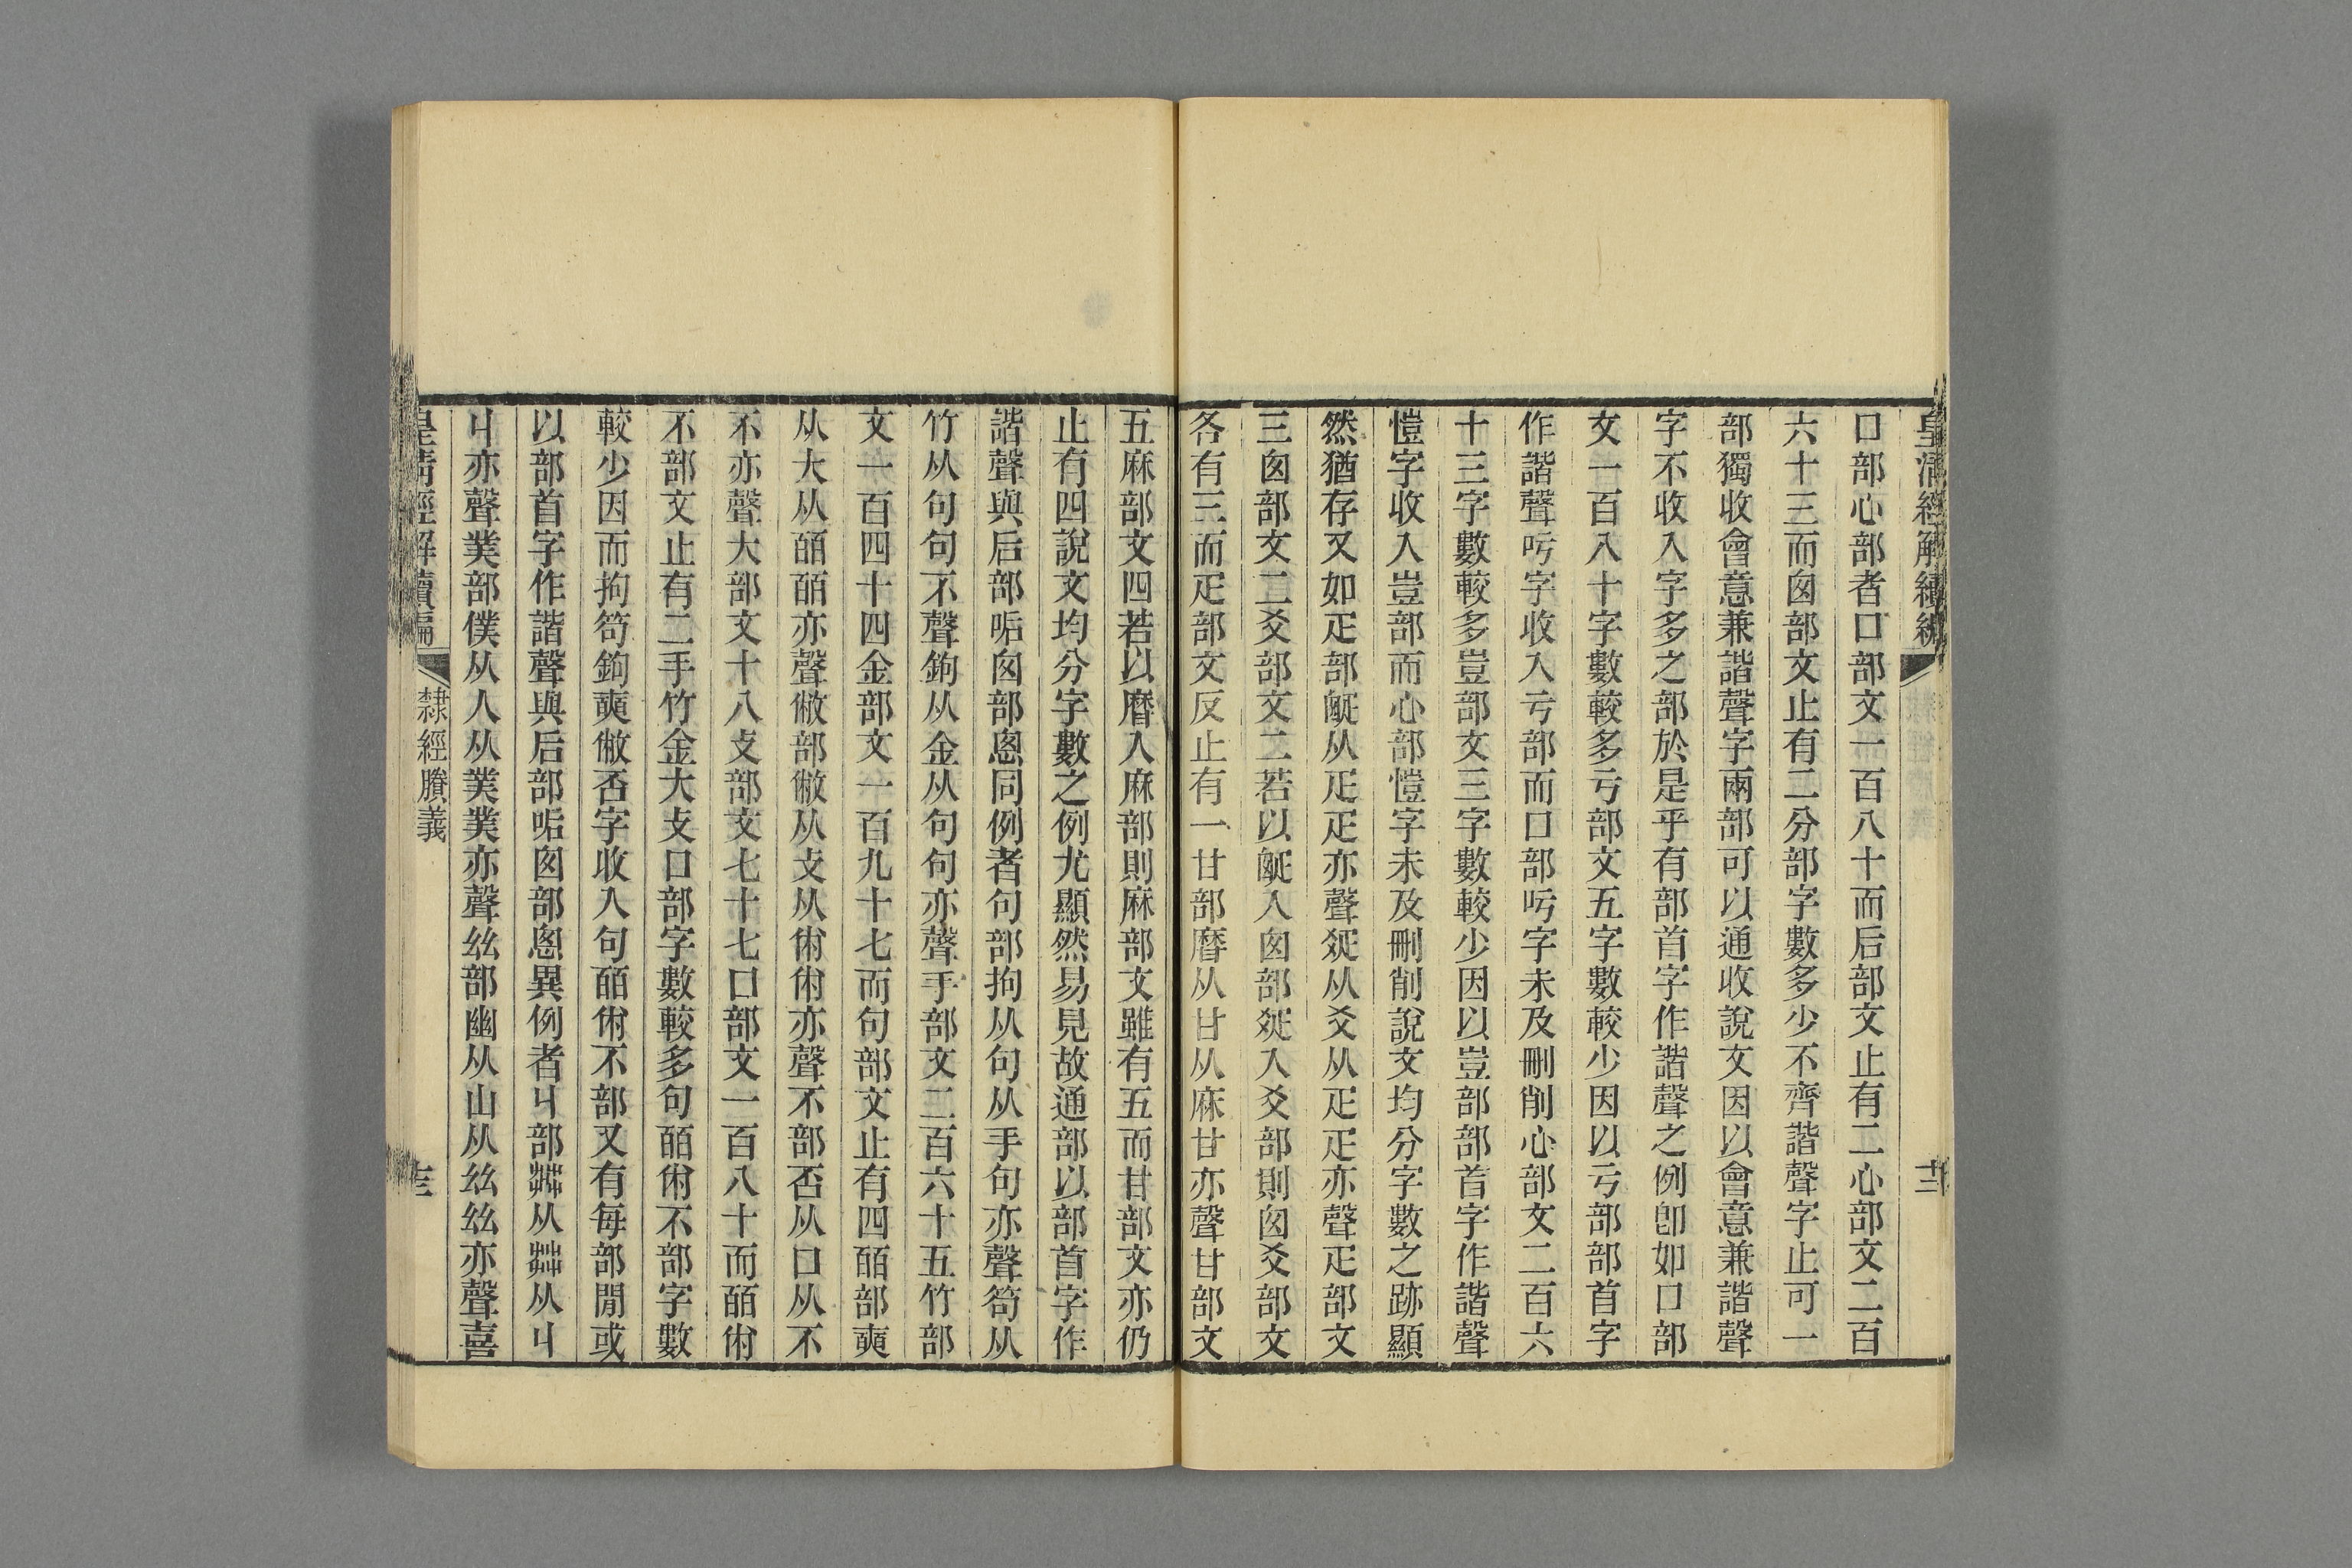 皇清經解續編
十二
口部心部者口部文一百八十而后部文止有二心部文二百
六十三而囪部文止有二分部字數多少不齊諧聲字止可一
部獨收會意兼諧聲字兩部可以通收說文因以會意兼諧聲
字不收入字多之部於是乎有部首字作諧聲之例卽如口部
文一百八十字數較多亏部文五字數較少因以亏部部首字
作諧聲吁字收入亏部而口部吁字未及刪削心部文二百六
十三字數較多豈部文三字數較少因以豈部部首字作諧聲
愷字收入豈部而心部愷字未及刪削說文均分字數之跡顯
然猶存又如疋部䟽从疋疋亦聲𤕟从爻从疋疋亦聲疋部文
三囪部文二爻部文二若以䟽入囪部𤕟入爻部則囪爻部文
各有三而疋部文反止有一甘部磿从甘从麻甘亦聲甘部文
五麻部文四若以磿入麻部則麻部文雖有五而甘部文亦仍
止有四說文均分字數之例尤顯然易見故通部以部首字作
諧聲與后部听囪部悤同例者句部拘从句从手句亦聲笱从
竹从句句亦聲鉤从金从句句亦聲手部文二百六十五竹部
文一百四十四金部文一百九十七而句部文止有四皕部奭
从大从皕皕亦聲㡀部敝从攴从㡀㡀亦聲不部否从口从不
不亦聲大部文十八攴部文七十七口部文一百八十而皕㡀
不部文止有二手竹金大攴口部字數較多句皕㡀不部字數
較少因而拘笱鉤奭敝否字收入句皕㡀不部又有每部閒或
以部首字作諧聲與后部听囪部悤異例者丩部𦱠从茻从丩
丩亦聲菐部僕从人从菐菐亦聲𢆶部幽从山从𢆶𢆶亦聲喜
皇清經解續編
隸經賸義
十三